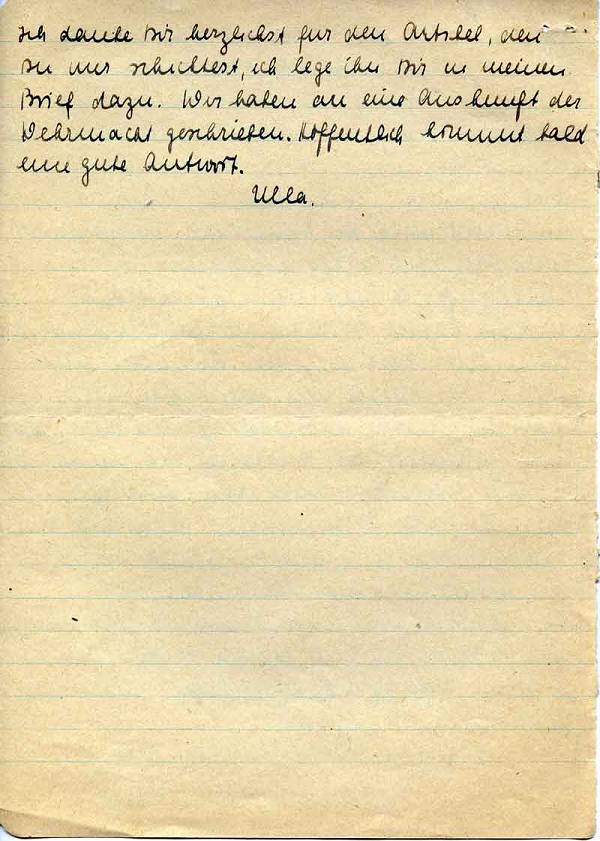 ich danke Dir herzlichst für den Artikel, den
Du mir schicktest, ich lege ihn Dir in meinen
Brief dazu. Wir haben an eine Auskunft der
Wehrmacht geschrieben. Hoffentlich kommt bald
eine gute Antwort.
Ulla.